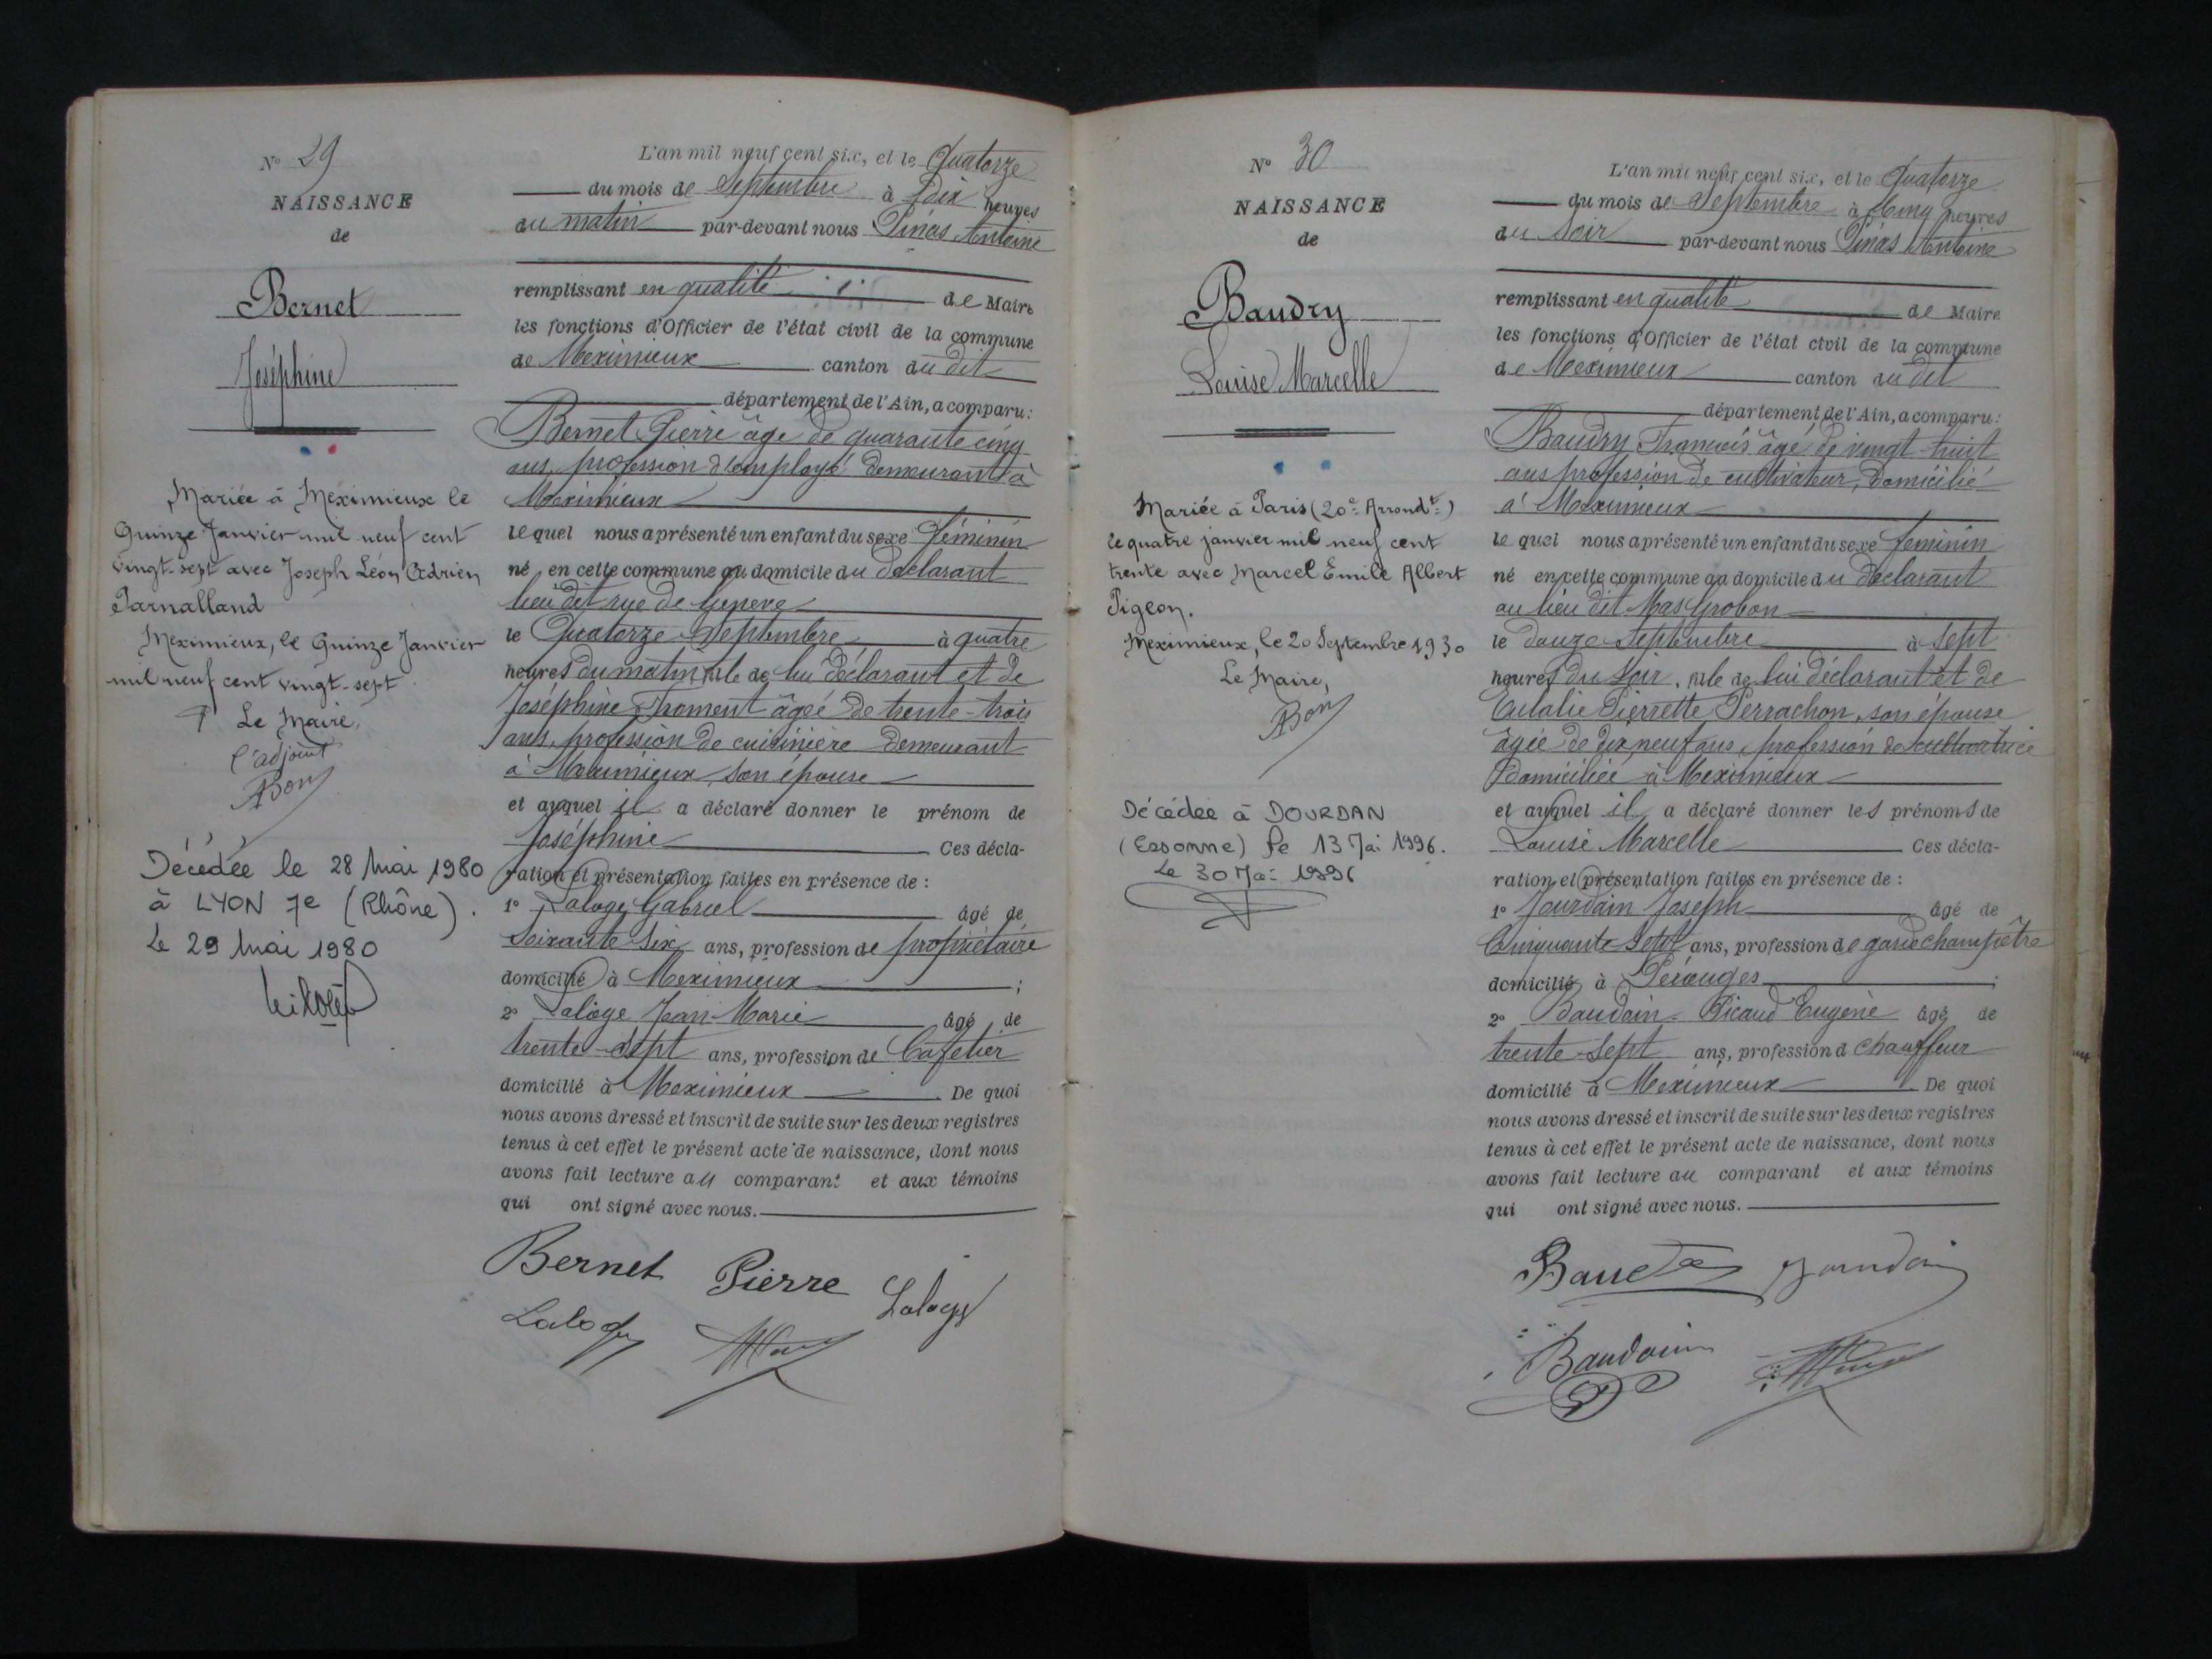 N° 29
NAISSANCE
de
Bernet
Joséphine
Mariée à Meximieux le
Quinze Janvier mil neuf cent
vingt-sept avec Joseph Léon Adrien
Parnalland
Meximieux, le Quinze Janvier
mil neuf cent vingt-sept
Le Maire,
l'adjoint
Décédée le 28 Mai 1980
à LYON 7e (Rhône).
Le 29 Mai 1980
L'an mil neuf cent six, et le Quatorze
du mois de Septembre à Dix heures
du matin par-devant nous Pinas Antoine
remplissant en qualité de Maire
les fonctions d'Officier de l'état civil de la commune
de Meximieux canton du dit
département de l'Ain, a comparu:
Bernet Pierre âgé de quarante cinq
ans, profession d'employé demeurant à
Meximieux
le quel nous a présenté un enfant du sexe féminin
né, en cette commune au domicile du déclarant
lieu dit rue de Genève
le Quatorze Septembre à quatre
heures du matin, file de lui déclarant et de
Joséphine Froment âgée de trente-trois
ans, profession de cuisinière demeurant
à Meximieux, son épouse
et auquel il a déclaré donner le prénom de
Joséphine Ces décla-
ration et présentation faites en présence de :
1° Laloge Gabriel âgé de
Soixante six ans, profession de propriétaire
domicilié à Meximieux ;
2° Laloge Jean-Marie âgé de
trente-sept ans, profession de Cafetier
domicilié à Meximieux. De quoi
nous avons dressé et inscrit de suite sur les deux registres
tenus à cet effet le présent acte de naissance, dont nous
avons fait lecture au comparant et aux témoins
qui ont signé avec nous.
Bernet Pierre Laloge
Laloge
N° 30
NAISSANCE
de
Baudry
Louise Marcelle
Mariée à Paris (20e Arrondt)
le quatre janvier mil neuf cent
trente avec Marcel Emile Albert
Pigeon.
Meximieux, le 20 Septembre 1930
Le Maire,
Décédée à DOURDAN
(Essonne) le 13 Mai 1996.
Le 30 Mai 1996
L'an mil neuf cent six, et le Quatorze
du mois de Septembre à Cinq heures
du Soir par-devant nous Pinas Antoine
remplissant en qualité de Maire
les fonctions d'Officier de l'état civil de la commune
de Meximieux canton du dit
département de l'Ain, a comparu:
Baudry François âgé de vingt-huit
ans profession de cultivateur, domicilié
à Meximieux
le quel nous a présenté un enfant du sexe féminin
né en cette commune au domicile du déclarant
au lieu dit Mas Grobon
le douze Septembre à Sept
heures du Soir, file de lui déclarant et de
Eulalie Pierrette Perrachon, son épouse
âgée de dix neuf ans, profession de cultivatrice
domiciliée à Meximieux
et auquel il a déclaré donner les prénoms de
Louise Marcelle Ces décla-
ration et présentation faites en présence de :
1° Jourdain Joseph âgé de
Cinquante Sept ans, profession de garde champêtre
domicilié à Pérouges ;
2° Baudoin-Picaud Eugène âgé de
trente-Sept ans, profession d chauffeur
domicilié à Meximieux. De quoi
nous avons dressé et inscrit de suite sur les deux registres
tenus à cet effet le présent acte de naissance, dont nous
avons fait lecture au comparant et aux témoins
qui ont signé avec nous.
Jourdain
Baudoin